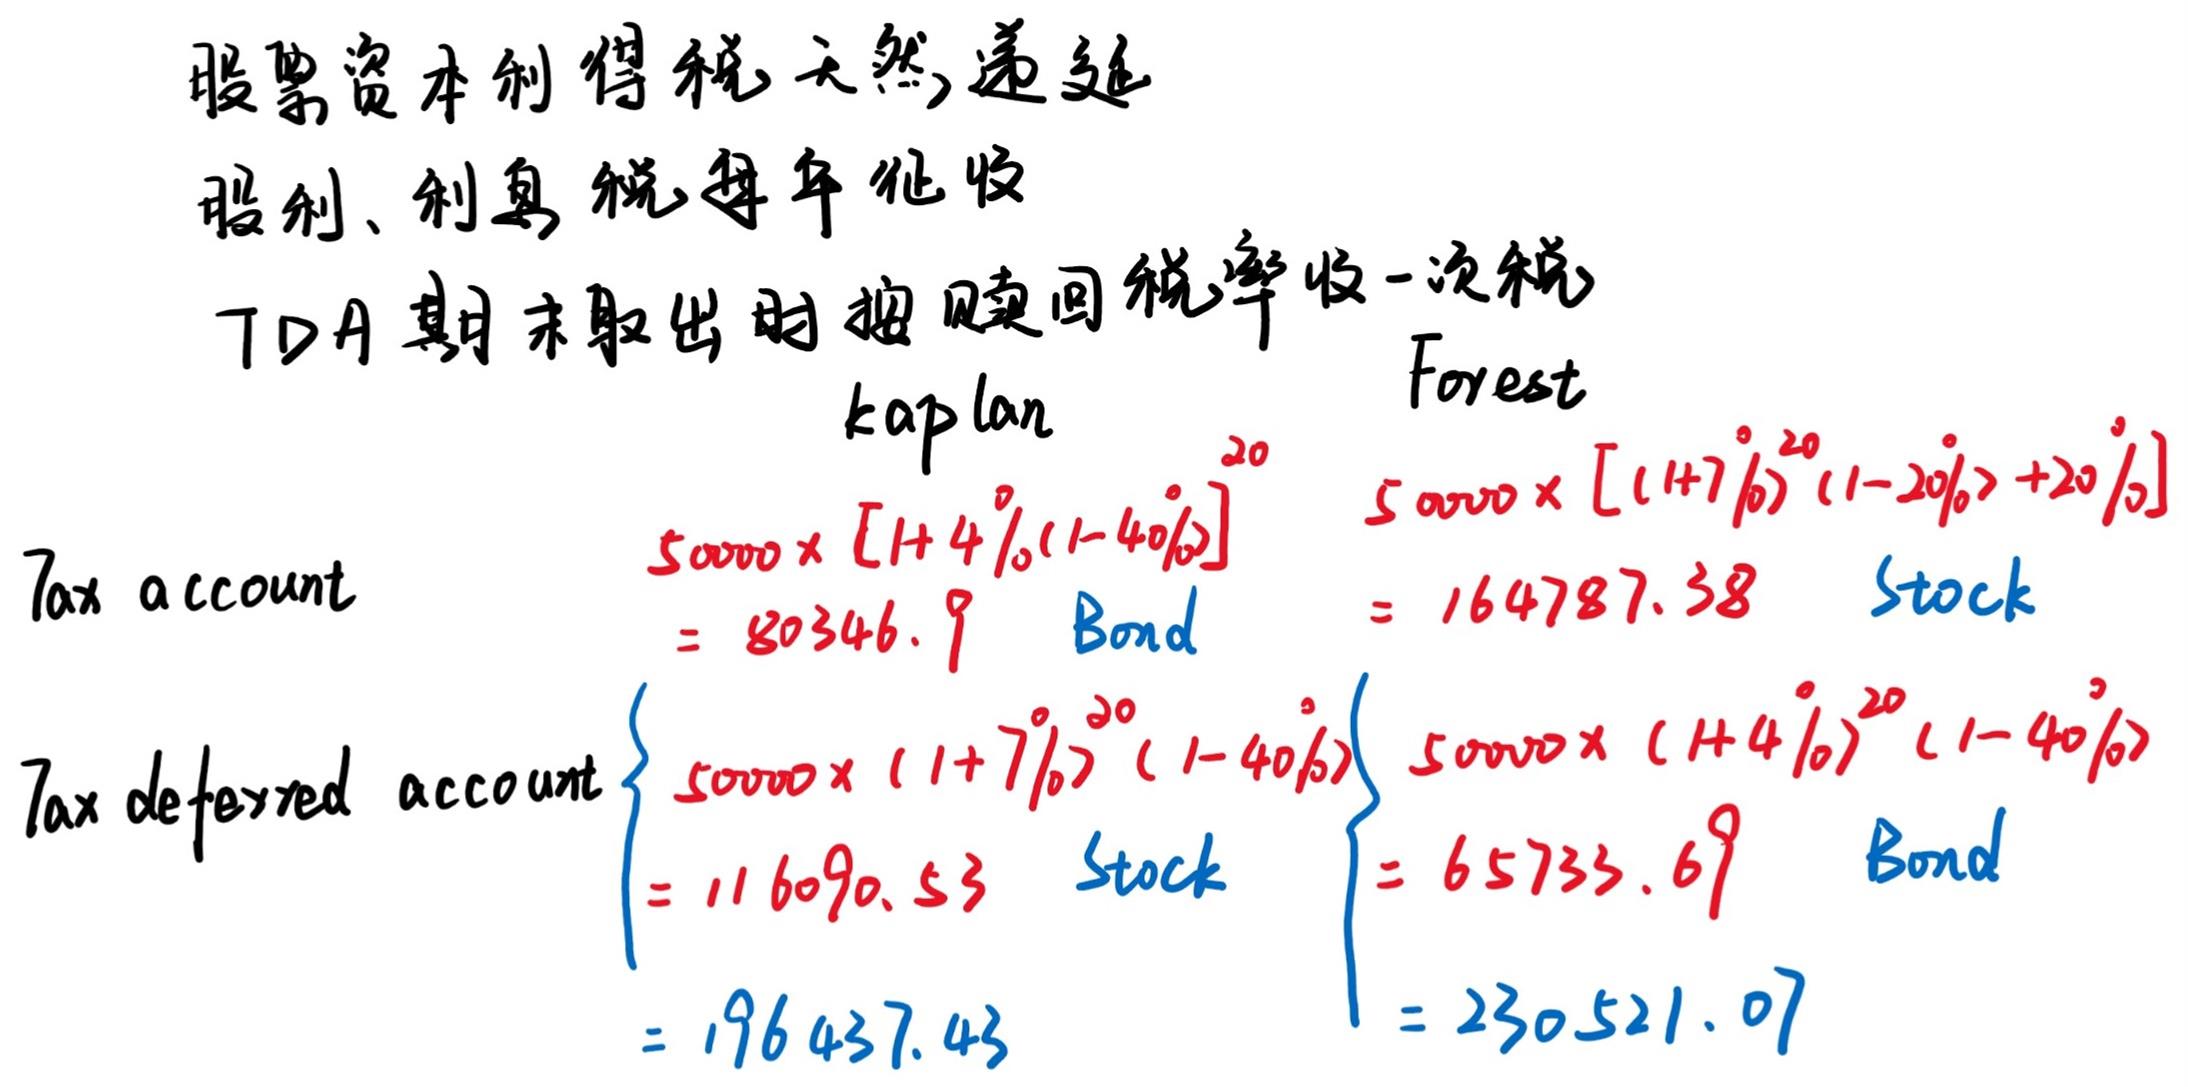 股票资本利得税天然递延
股利、利息税每年征收
TDA期末取出时按赎回税率收一次税
kaplan Forest
Tax account 50000×[1+4%(1-40%)]^20 50000×[(1+7%)^20(1-20%)+20%]
= 80346.9 Bond = 164787.38 Stock
Tax deferred account 50000×(1+7%)^20(1-40%) 50000×(1+4%)^20(1-40%)
= 116090.53 Stock = 65733.69 Bond
= 196437.43 = 230521.07